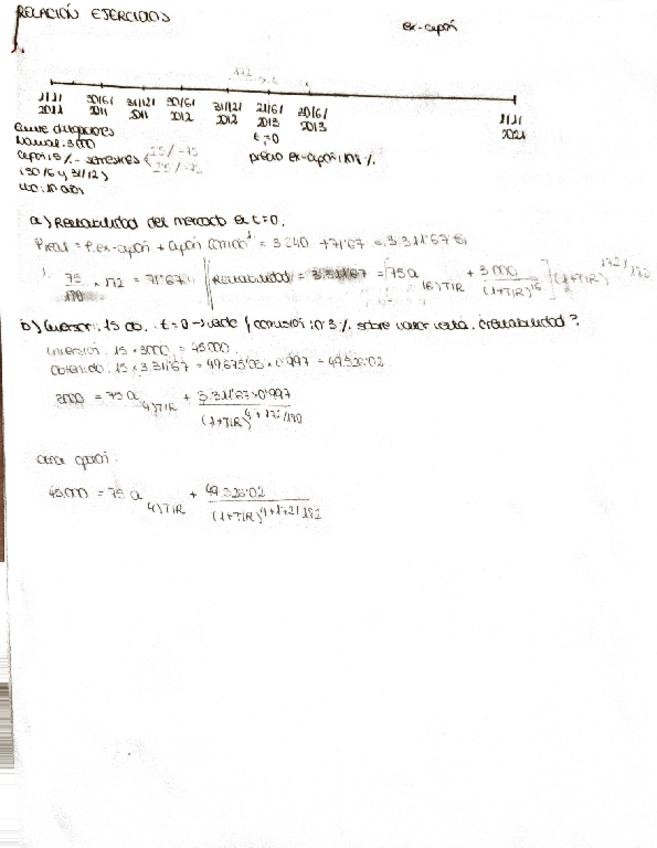 RELACIÓN EJERCICIOS
ex-cupón
172
1/1/ 2011 30/6/ 2011 31/12/ 2011 30/6/ 2012 31/12/ 2012 21/6/ 2013 30/6/ 2013 1/1/ 2021
t=0
Nominal: 3000
Cupón: 5% - semestres
(30/6 y 31/12)
10 años
precio ex-cupón: 108%
a) Rentabilidad del mercado en t=0.
P.real = P.ex-cupón + cupón corrido¹ = 3.240 + 71'67 = 3.311'67 €
1. 75/180 × 172 = 71'67 Rentabilidad = 3.311'67 = [75 a 16⌉TIR + 3000/(1+TIR)^16] (1+TIR)^172/182
b) Inversor: 15 ob. t=0 → vende / comisión: 0'3% sobre valor venta. ¿rentabilidad?
Inversión: 15 × 3000 = 45000
Obtenido: 15 × 3.311'67 = 49.675'05 × 0'997 = 49.526'02
3000 = 75 a 4⌉TIR + 3.311'67×0'997/(1+TIR)^4+172/180
otra opción:
45.000 = 75 a 4⌉TIR + 49.526'02/(1+TIR)